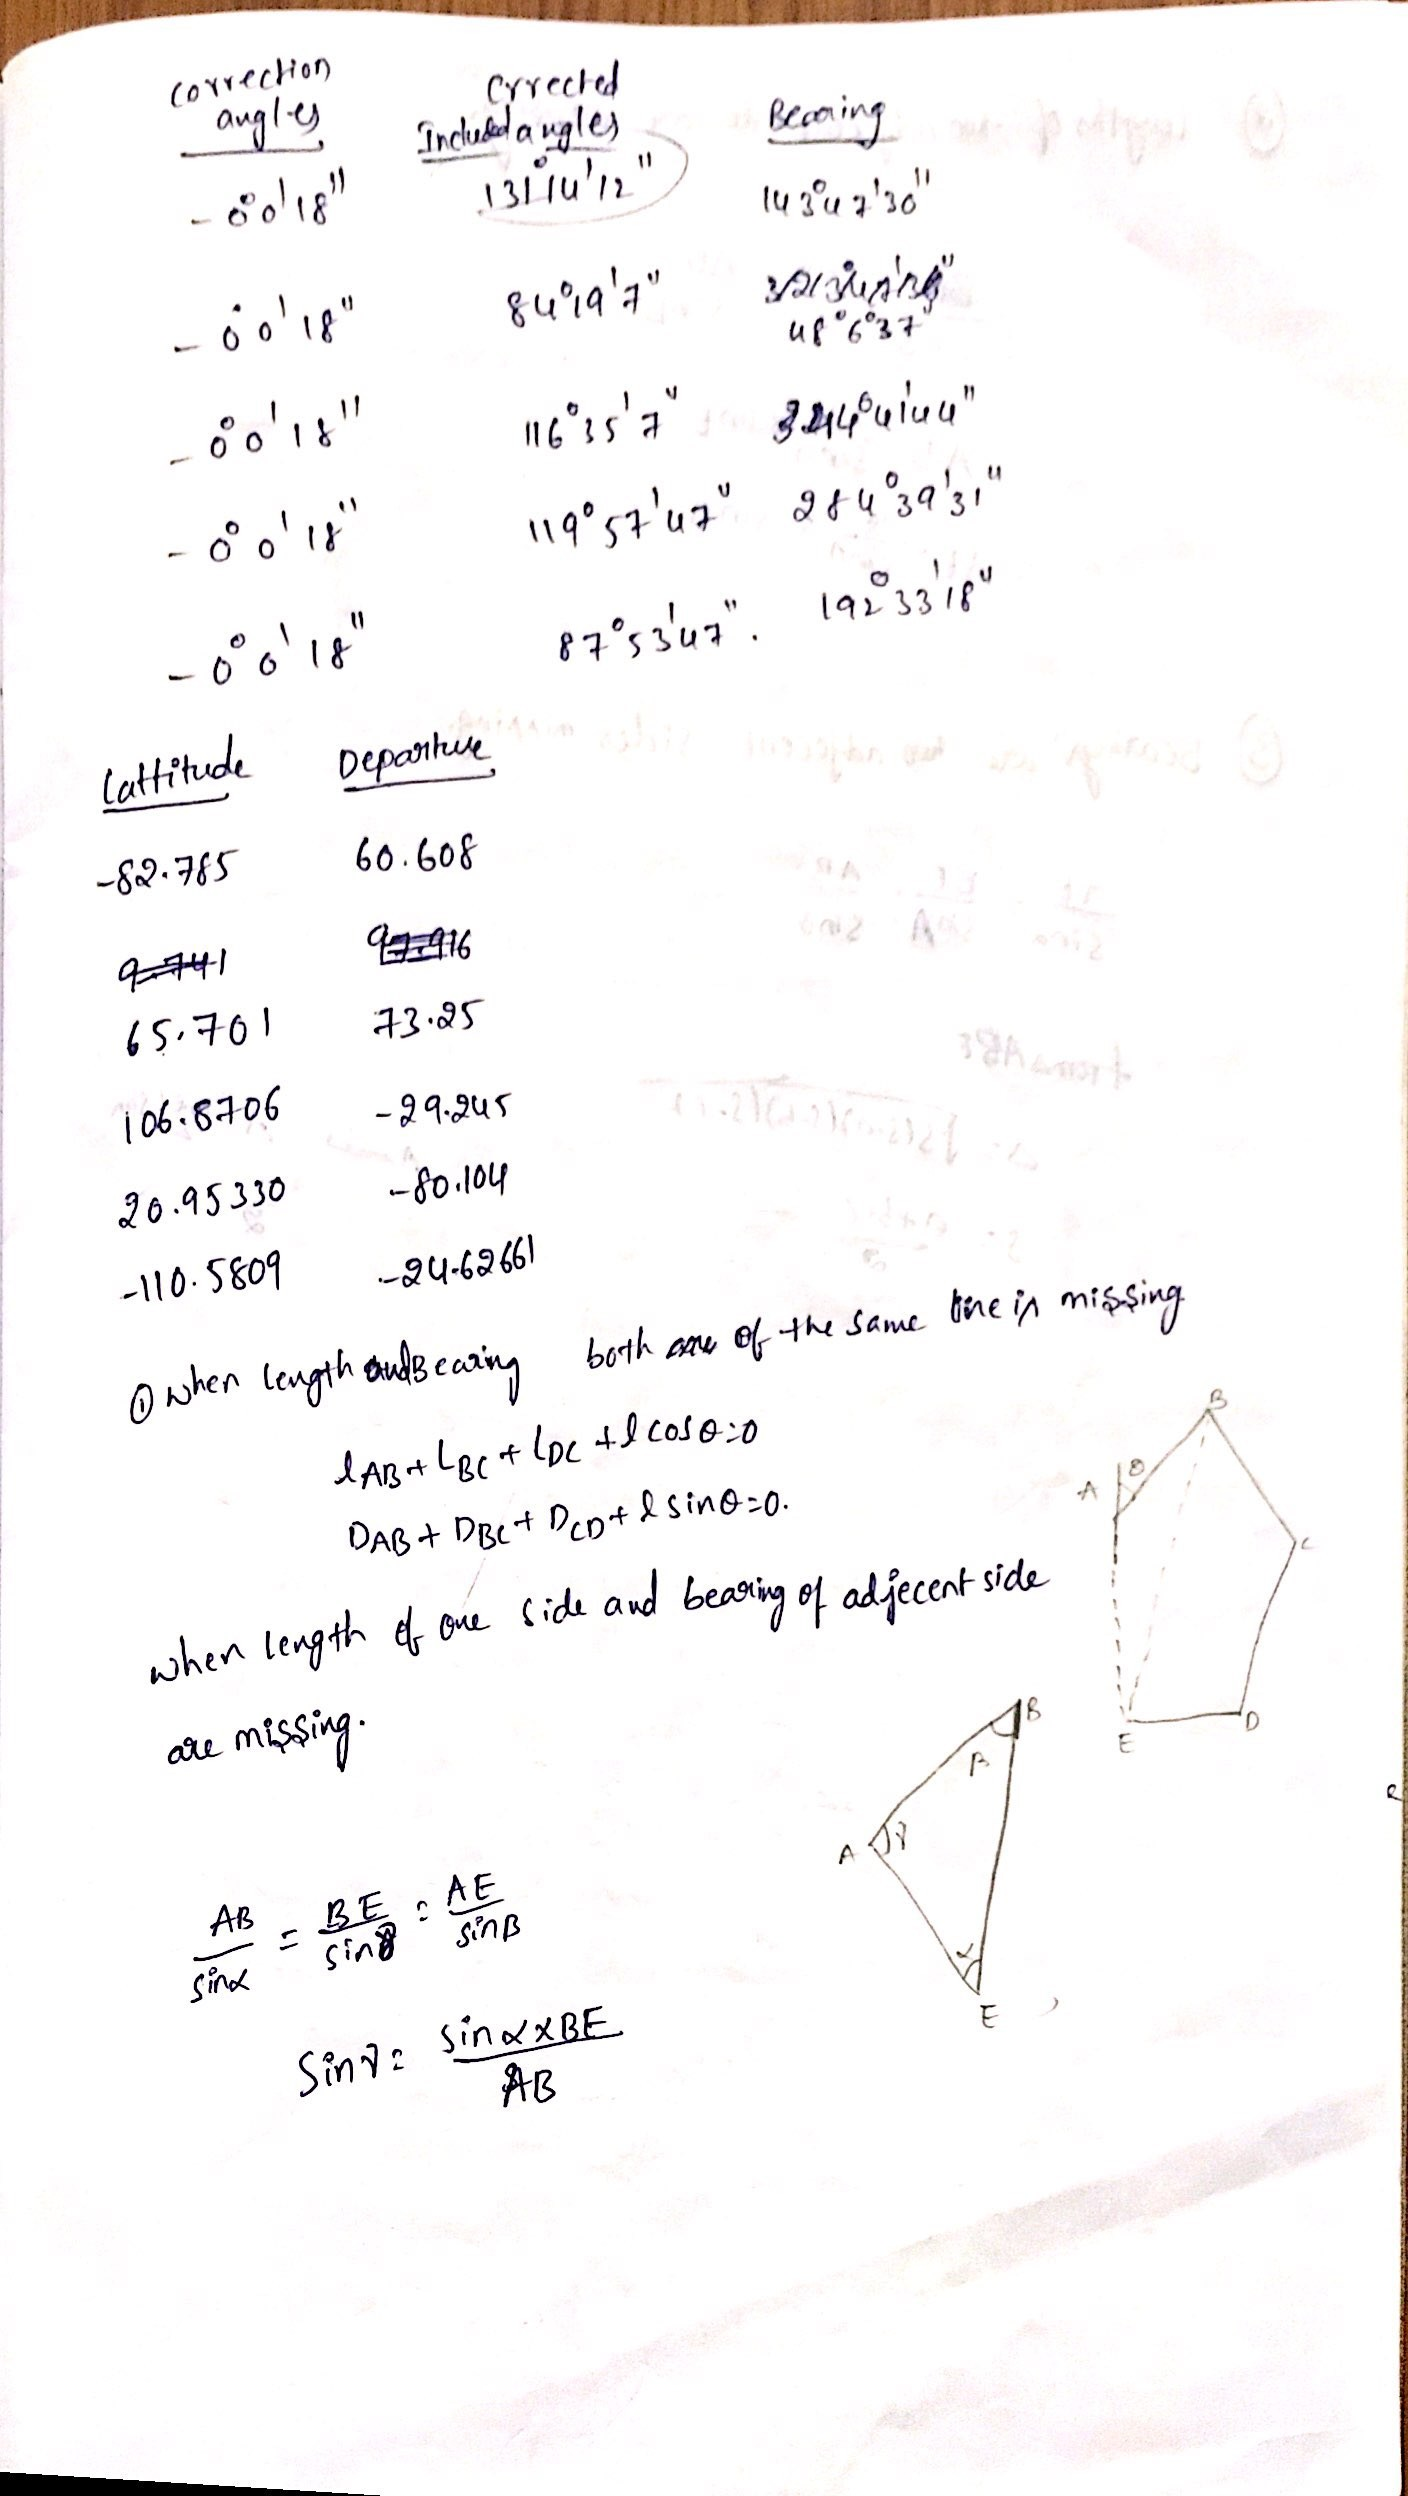 correction Crrected Bearing
angles Included angles
-0°0'18" 131°14'12" 143°47'30"
-0°0'18" 84°19'7"
48°6°37"
-0°0'18" 116°35'7" 344°41'44"
-0°0'18" 119°57'47" 284°39'31"
-0°0'18" 87°53'47". 192°33'18"
Lattitude Departure
-82.785 60.608
9.741 97.916
65.701 73.25
106.8706 -29.245
20.95330 -80.104
-110.5809 -24.62661
① when length and Bearing both of the same line is missing
lAB + LBC + LDC + l cosθ=0
DAB + DBC + DCD + l sinθ=0.
when length of one side and bearing of adjecent side
are missing.
B
θ
A
C
E
D
B
β
A
γ
α
E
AB/sinα = BE/sinγ = AE/sinβ
Sinγ = sinα×BE/AB